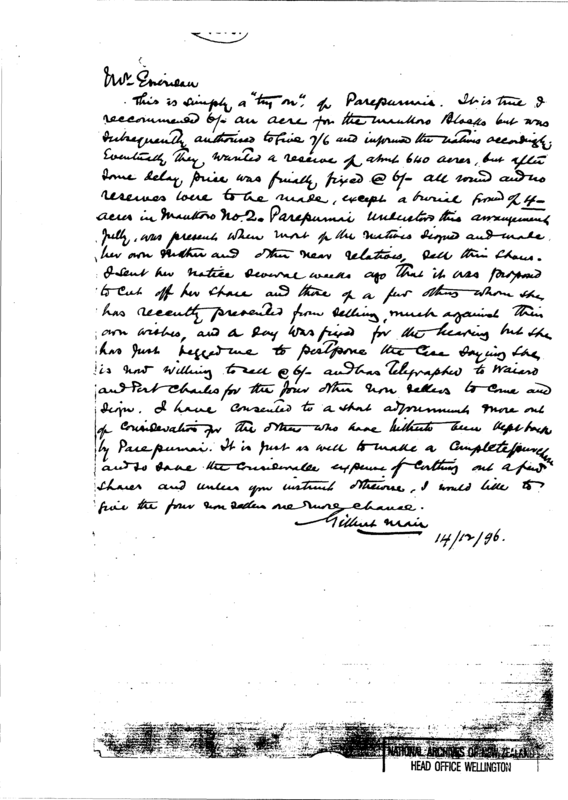 Mr Sheridan
This is simply a "try on" of Parepumai. It is true I
reccommened 6/- an acre for the Moutoro Blocks but was
subsequently authorised to Give 7/6 and informed the natives accordingly.
Eventually they wanted a reserve of about 640 acres, but after
some delay price was finally fixed @ 6/- all round and no
reserves were to be made, except a burial Ground of 4
acres in No. 2. Parepumai understood this arrangement
fully, was present when most of the Natives signed and made
her own Mother and other near relatives, sell their shares.
I sent her notice several weeks ago that it was proposed
to cut off her share and those of a few others whom she
has recently prevented from selling, much against their
own wishes, and a day was fixed for the hearing but she
has just begged me to postpone the Case saying she
is now willing to sell @ 6/- and has telegraphed to Waiaro
and Port Charles for the four other non sellers to come and
sign. I have consented to a short adjournment more out
of consideration for the others who have hitherto been kept back
by Parepumai. It is just as well to make a Complete purchase
and so save the considerable expense of Cutting out a few
shares and unless you instruct otherwise, I would like to
give the four non sellers one more chance.
Gilbert Mair
14/12/96.
NATIONAL ARCHIVES OF NEW ZEALAND
HEAD OFFICE WELLINGTON